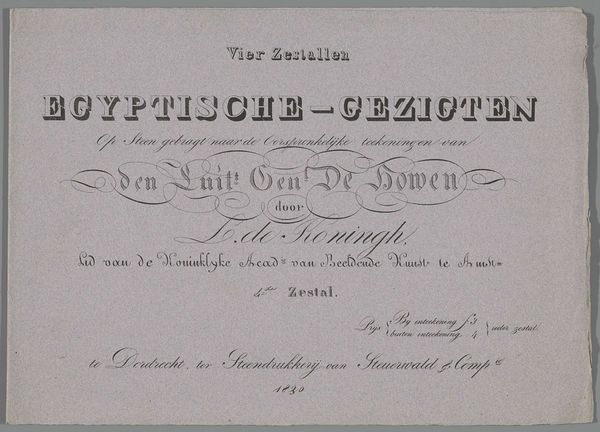 Vier Zestallen
EGYPTISCHE – GEZIGTEN
Op Steen gebragt naar de Oorspronkelijke teekeningen van
den Luitt Gent De Howen
door
L. de Koningh,
Lid van de Koninklyke Acade van Beeldende Kunst te Amst=
4de Zestal.
Prys { By inteekening f 3 } ieder zestal.
buiten inteekening 4
te Dordrecht, ter Steendrukkerij van Steuerwald & Compe
1830